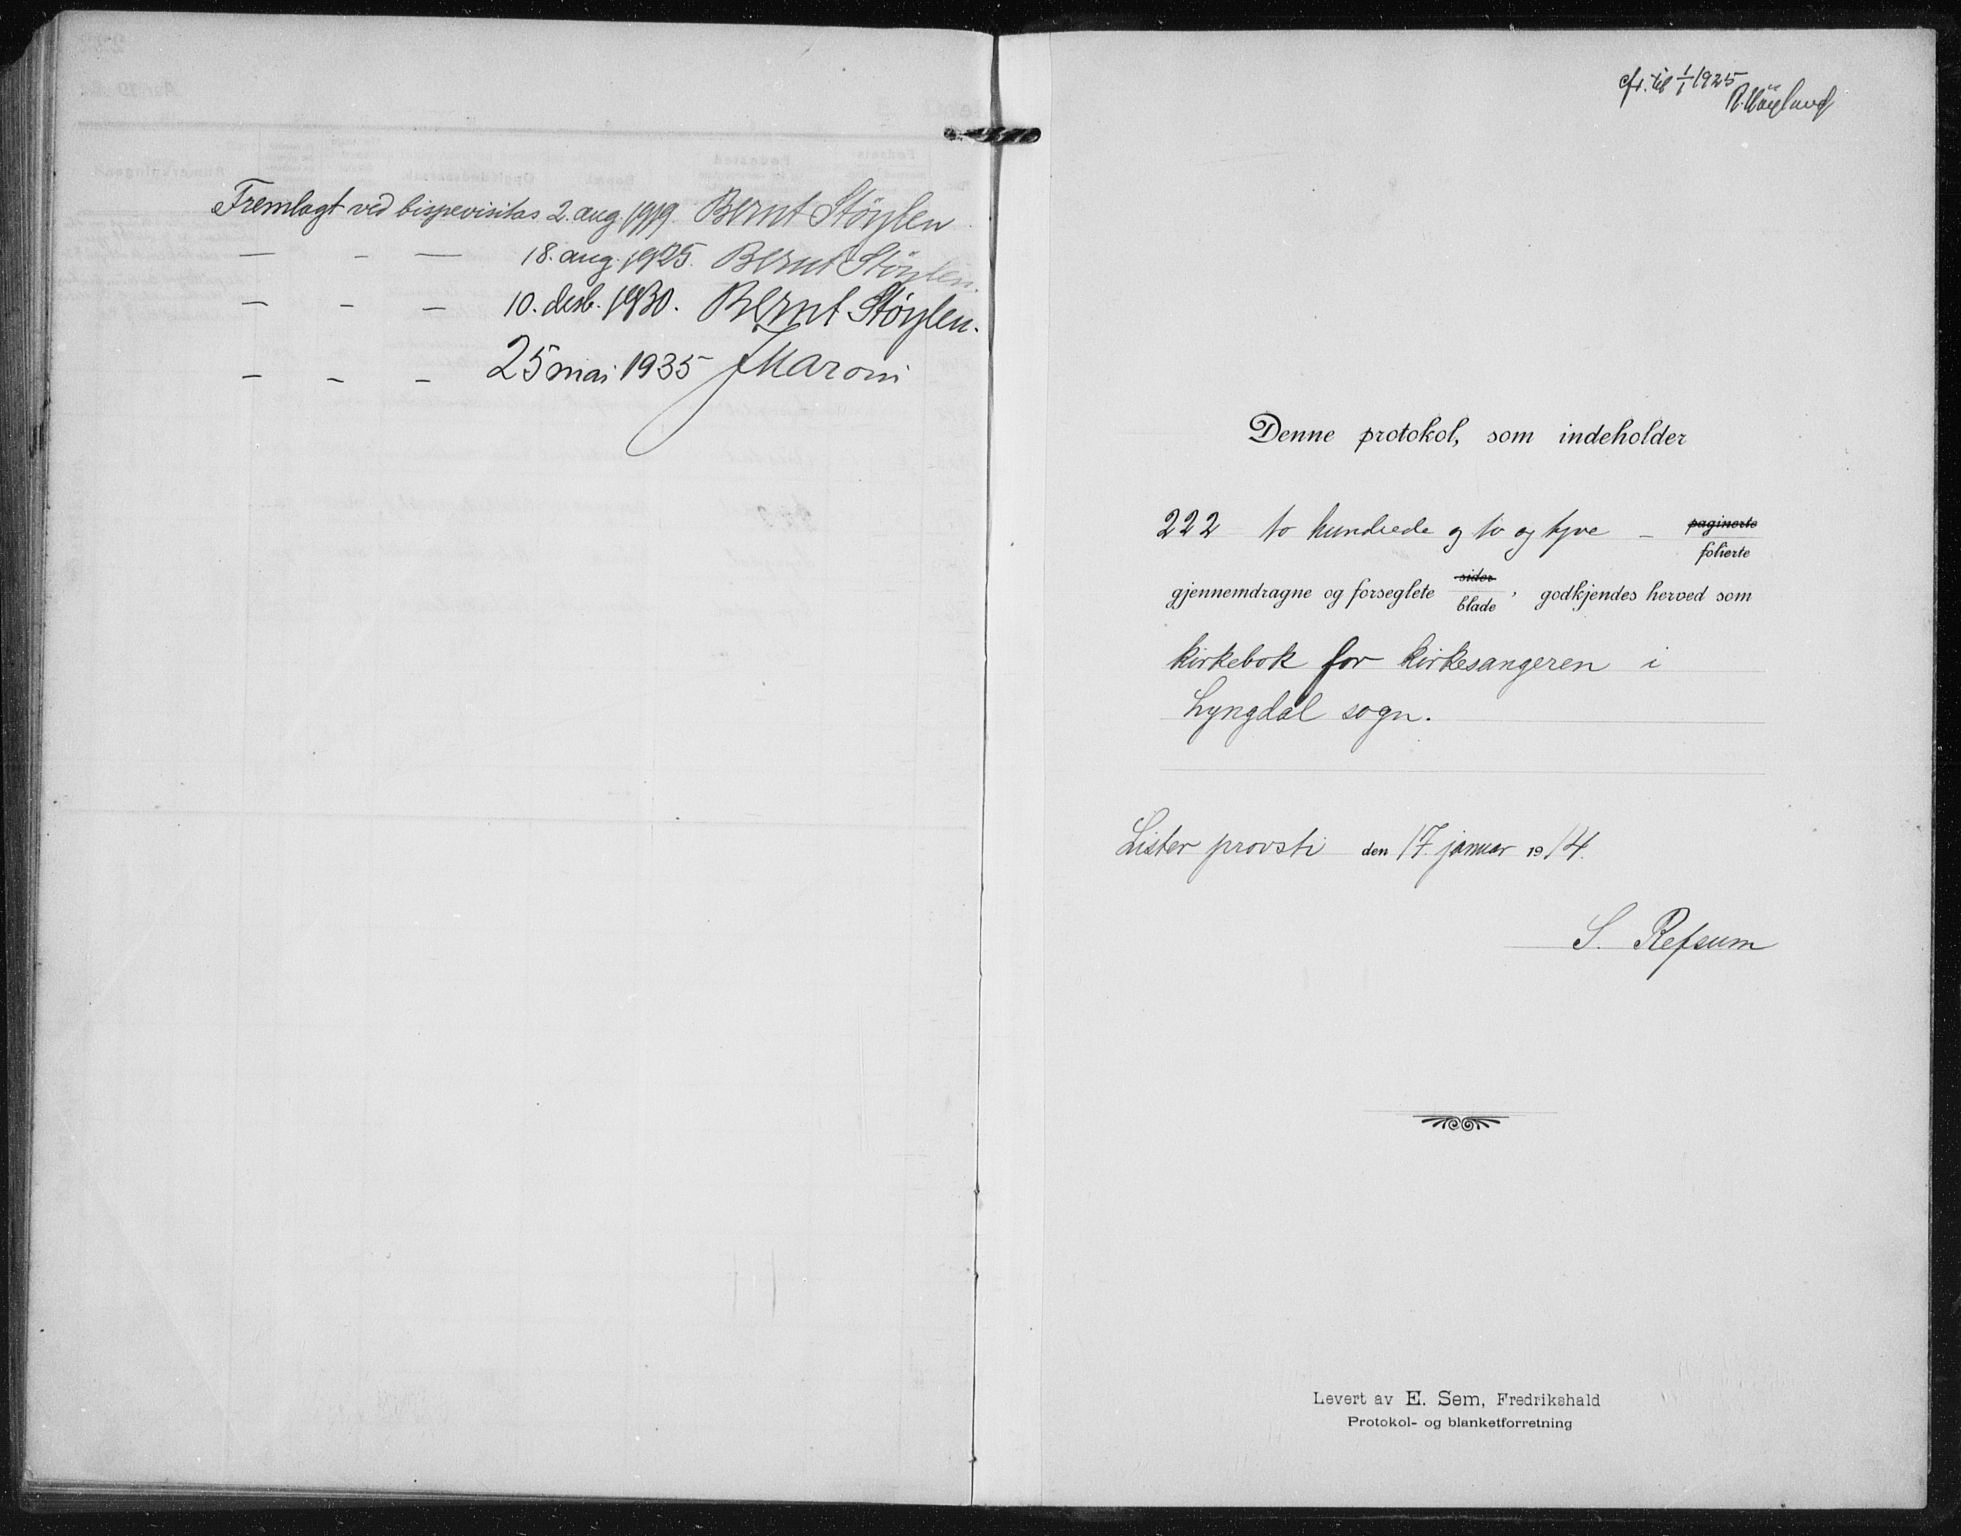 Fremlagt ved bispevisitas 2. aug. 1919. Bernt Støylen
— - — 18. aug. 1925. Bernt Støylen.
— - — 10. desb. 1930. Bernt Støylen.
- - - 25 mai 1935 J Maroni
cfr. til 1/1 1925
Denne protokol, som indeholder
222 to hundrede og to og tyve - paginerte
folierte
gjennemdragne og forseglete sider blade, godkjendes herved som
kirkebok for kirkesangeren i
Lyngdal sogn.
Lister provsti den 17. januar 1914.
S. Refsum
Levert av E. Sem, Fredrikshald
Protokol- og blanketforretning